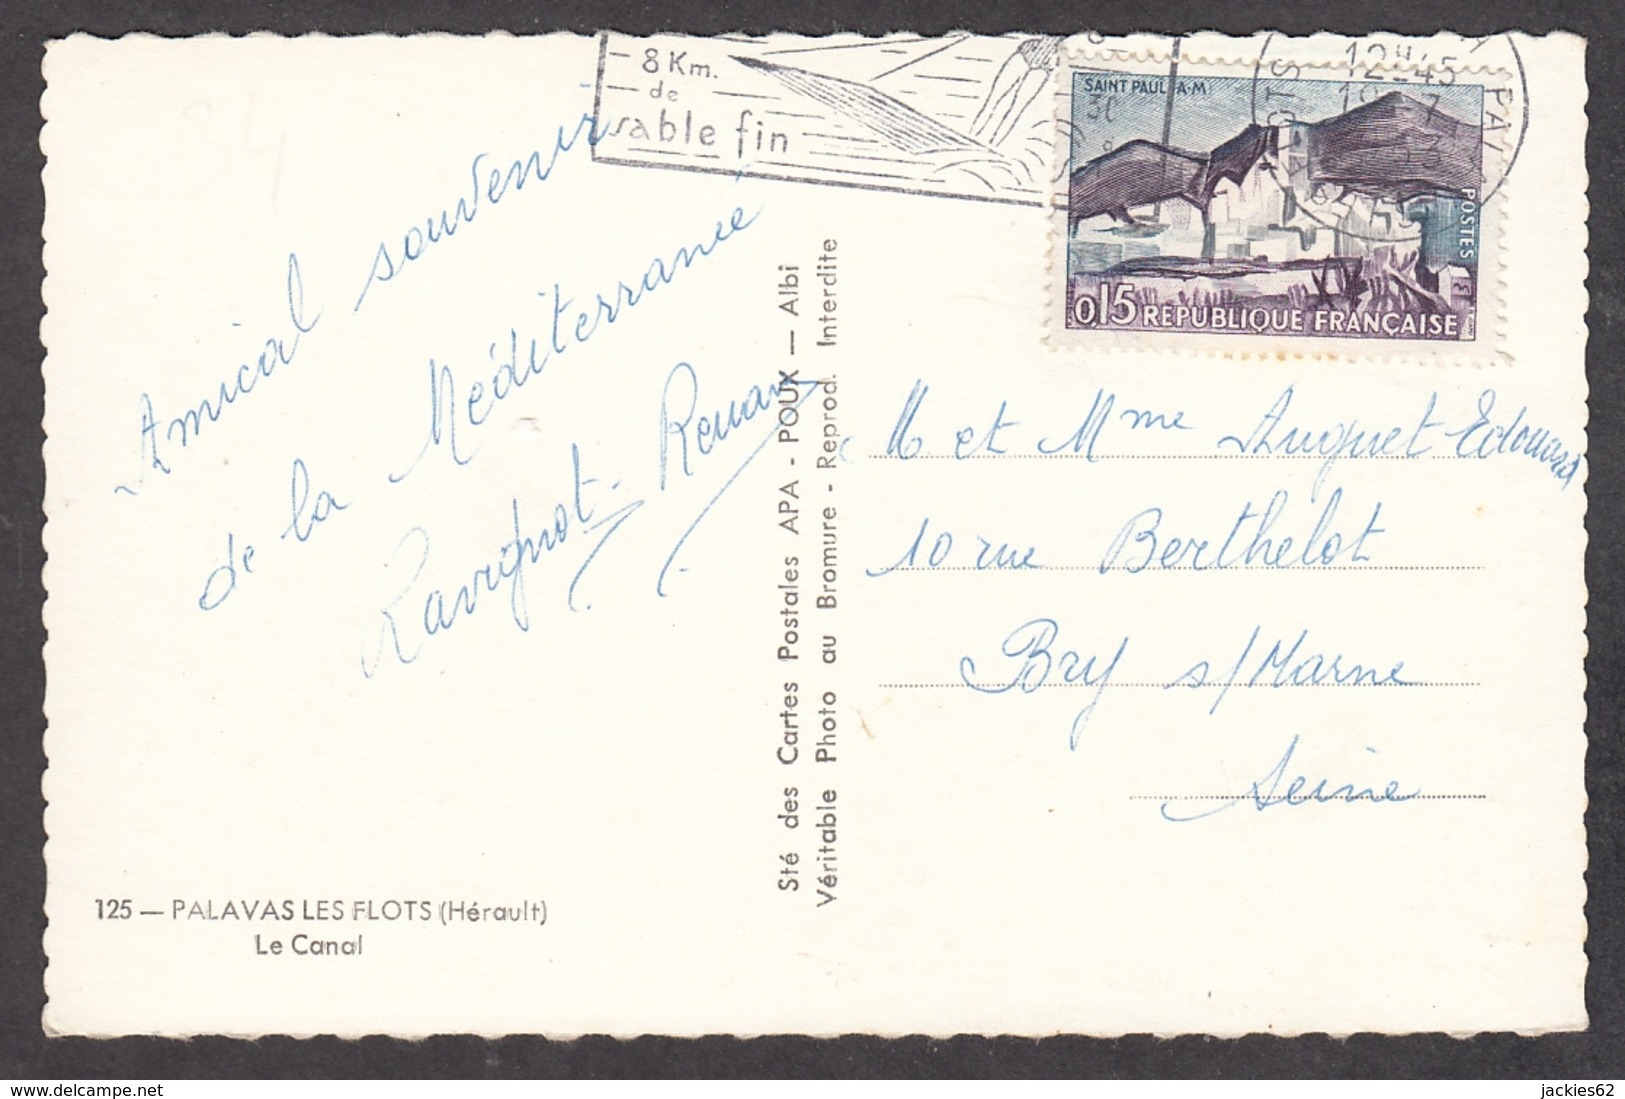 8 Km.
de
sable fin
SAINT PAUL (A.M)
12H45
POSTES
0,15 REPUBLIQUE FRANÇAISE
Amical souvenir
de la Méditerranée
Ravignot - Renaux
Sté des Cartes Postales APA - POUX — Albi
Véritable Photo au Bromure - Reprod. Interdite
M et Mme Auguet Edouard
10 rue Berthelot
Bry s/Marne
Seine
125 — PALAVAS LES FLOTS (Hérault)
Le Canal
www.delcampe.net
jackies62